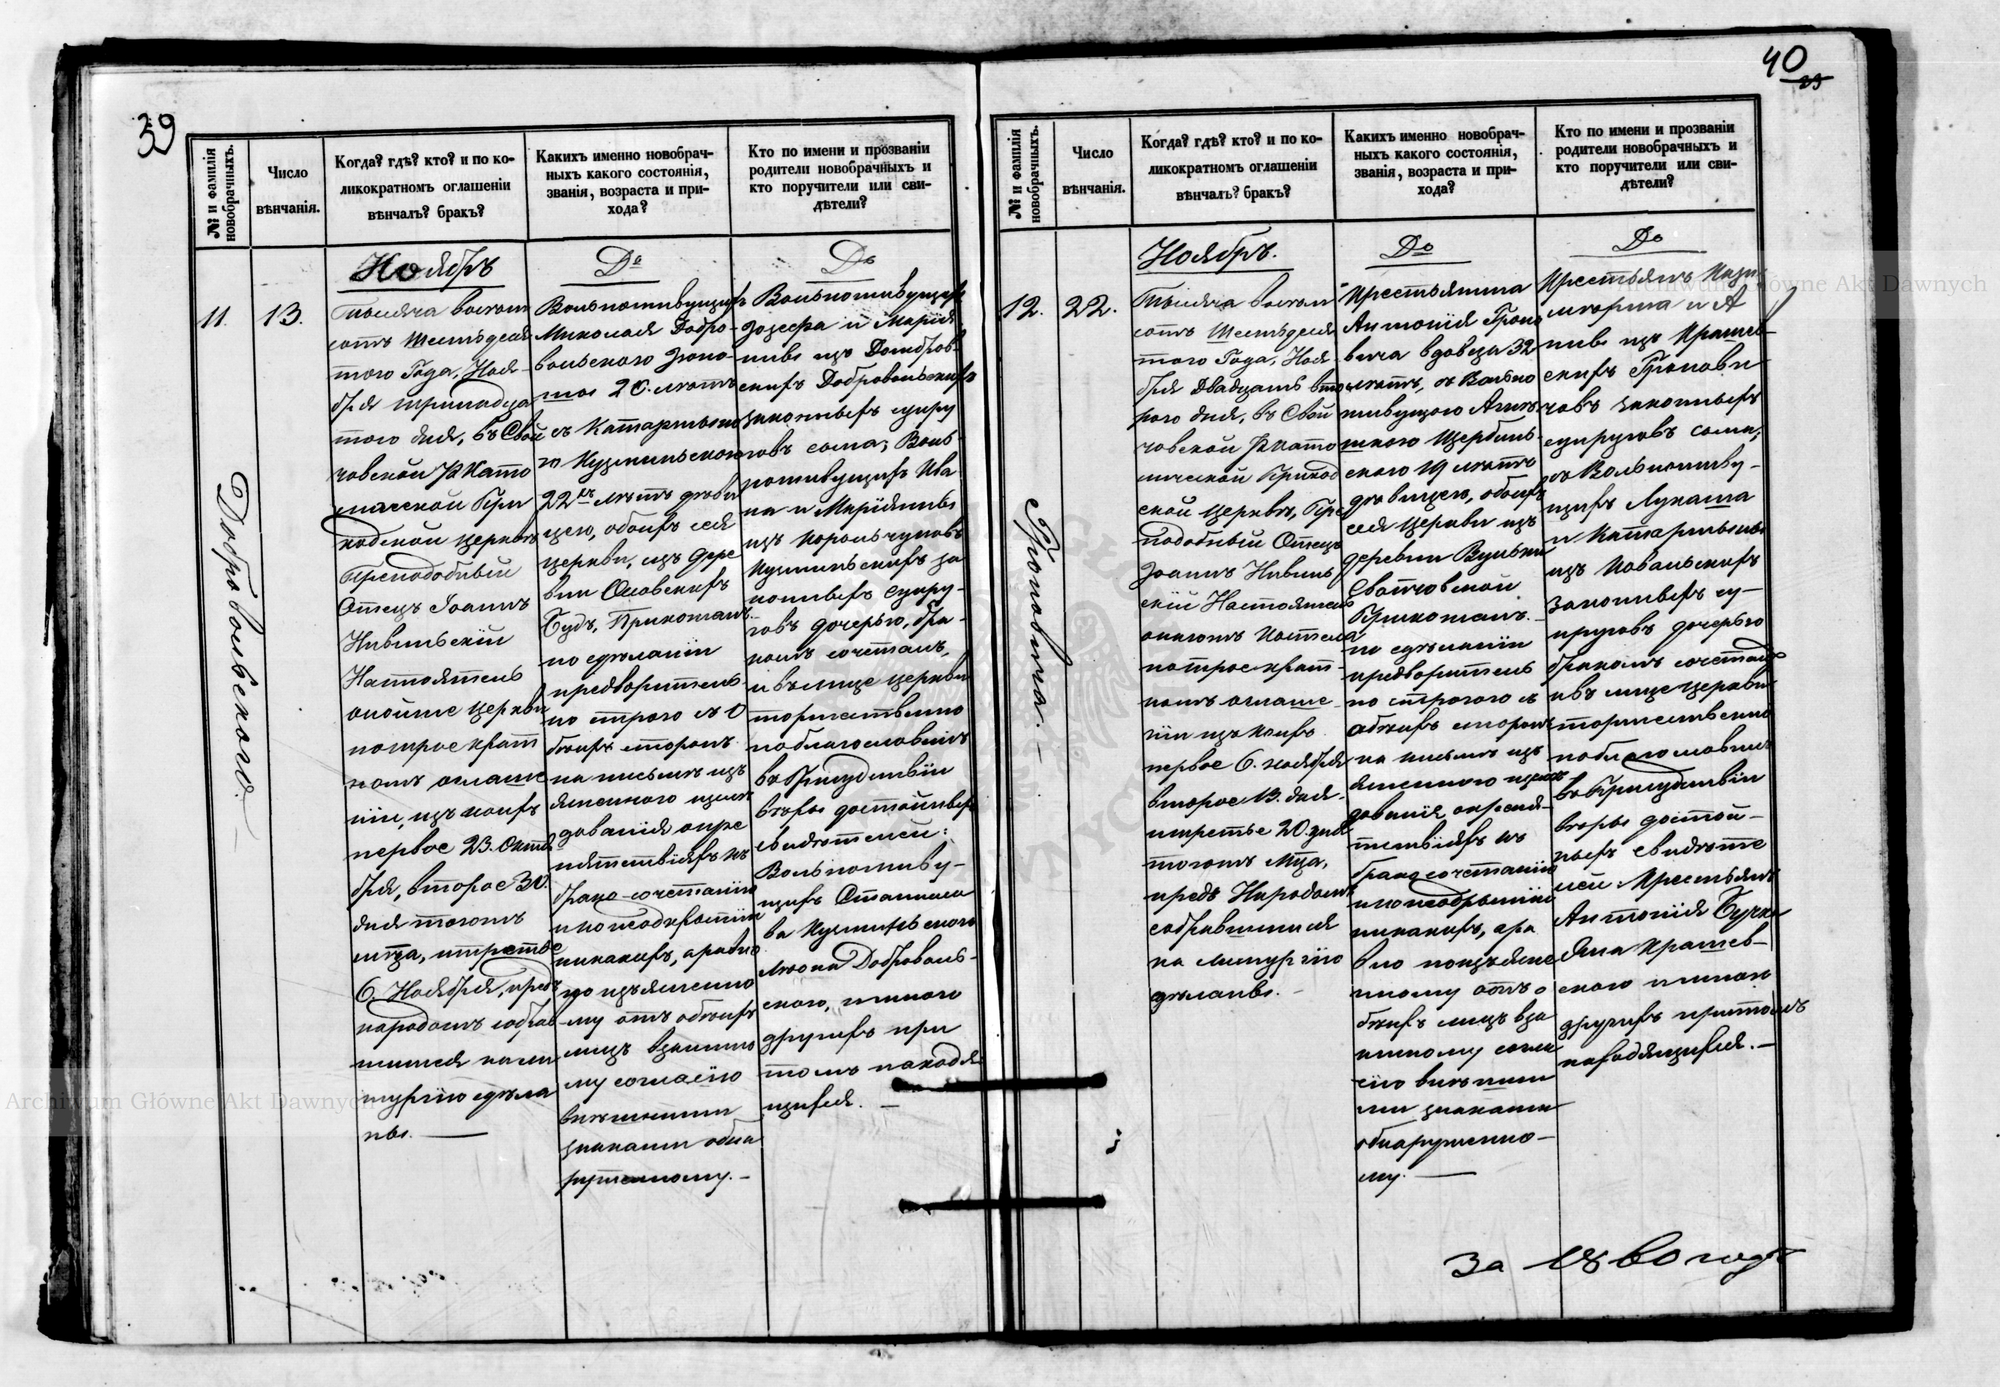 39
№ и фамилія новобрачныхъ.
Число вѣнчанія.
Когда? гдѣ? кто? и по ко-
ликократномъ оглашеніи
вѣнчалъ? бракъ?
Какихъ именно новобрач-
ныхъ какого состоянія,
званія, возраста и при-
хода?
Кто по имени и прозванію
родители новобрачныхъ и
кто поручители или сви-
дѣтели?
11.
Добровольского.
13.
Ноябрь
Тысяча восем
сотъ шестьдеся
того Года, Нояб-
бря тринадца
того дня, въ Свой
човской Р Като
лической При
ходской церквѣ
Преподобный
Отецъ Іоаннъ
Нивинскій
Настоятель
онойже церкви
по троекрат
номъ оглаше
ніи, изъ коихъ
первое 23. Октя
бря, второе 30.
дня тогожъ
мѣца, и третье
6. Ноября, предъ
народомъ собрав
шимся на ли
тургію сдѣла
ны.
До
Вольноживущихъ
Николая Добро-
вольского Юно-
шю 20. лѣтъ
съ Катаржиною
Кузминьскою
22хъ лѣтъ дѣви
цею, обоихъ сея
церкви, изъ дере
вни Осовскихъ
Будъ, Прихожанъ.
по сдѣланіи
предварительно
го строго съ О
боихъ сторонъ
на письмѣ изъ
ясненного изслѣ
дованія о пре
пятствіяхъ къ
брако-сочетанію
и по неоткрытіи
никакихъ, а равно
по изъясненно
му отъ обоихъ
лицъ взаимно
му согласію
внѣшними
знаками обна
руженному.—
До
Вольноживущихъ
Іозефа и Маріян
ны изъ Домбров-
скихъ Добровольскихъ
законныхъ супру
говъ сына, Воль-
ноживущихъ Ива
на и Маріянны
изъ Корольчуковъ
Кузминьскихъ за
конныхъ супру-
говъ дочерью, бра-
комъ сочеталъ,
и въ лице церкви
торжественно
поблагословилъ
въ Присудствіи
вѣры достойныхъ
свидѣтелей:
Вольноживу-
щихъ Станисла
ва Кузминьского
Леона Доброволь-
ского, и много
другихъ при
томъ находя
щихся. —
40
39
№ и фамилія новобрачныхъ.
Число вѣнчанія.
Когда? гдѣ? кто? и по ко-
ликократномъ оглашеніи
вѣнчалъ? бракъ?
Какихъ именно новобрач-
ныхъ какого состоянія,
званія, возраста и при-
хода?
Кто по имени и прозваніи
родители новобрачныхъ и
кто поручители или сви-
дѣтели?
12.
22.
Ноябрь.
Тысяча восем
сотъ шестьдеся
того Года, Ноя
бря двадцать вто
рого дня, въ Свой
човской Р Като
лической Приход
ской церквѣ, Пре
подобный Отецъ
Іоаннъ Нивинь
скій Настоятель
по троекрат-
номъ оглаше
ніи изъ коихъ
первое 6. ноября
второе 13. дня
и третье 20. дня
тогожъ Мѣца,
предъ Народомъ
собравшимся
на литургію
сдѣланы.
До
Крестьянина
Антонія Гроно
вича вдовца 32
лѣтъ, съ Вольно
дѣвицею, обоихъ
сея церкви изъ
деревни Вульки
Прихожанъ.
по сдѣланіи
предварительно
на письмѣ изъ
брако-сочетанію
никакихъ, а ра
вно по изъясне
нному отъ о
боихъ лицъ вза
имному согла
сію внѣшни
ми знаками
обнаруженно-
му. —
До
Крестьянъ Кази
міержа и А
скихъ Гронови
човъ законныхъ
супруговъ сына,
съ Вольноживу-
щихъ Лукаша
и Катаржины
изъ Ковальскихъ
законныхъ су-
пруговъ дочерью
бракомъ сочеталъ
и въ лице церкви
торжественно
поблагословилъ
въ Присудствіи
вѣры достой-
ныхъ свидѣте
лей: Крестьянъ
Антонія Бучка
Яна Крашев-
ского и иных
другихъ притомъ
находящихся. —
За 1860 годъ
Archiwum Główne Akt Dawnych
Archiwum Główne Akt Dawnych